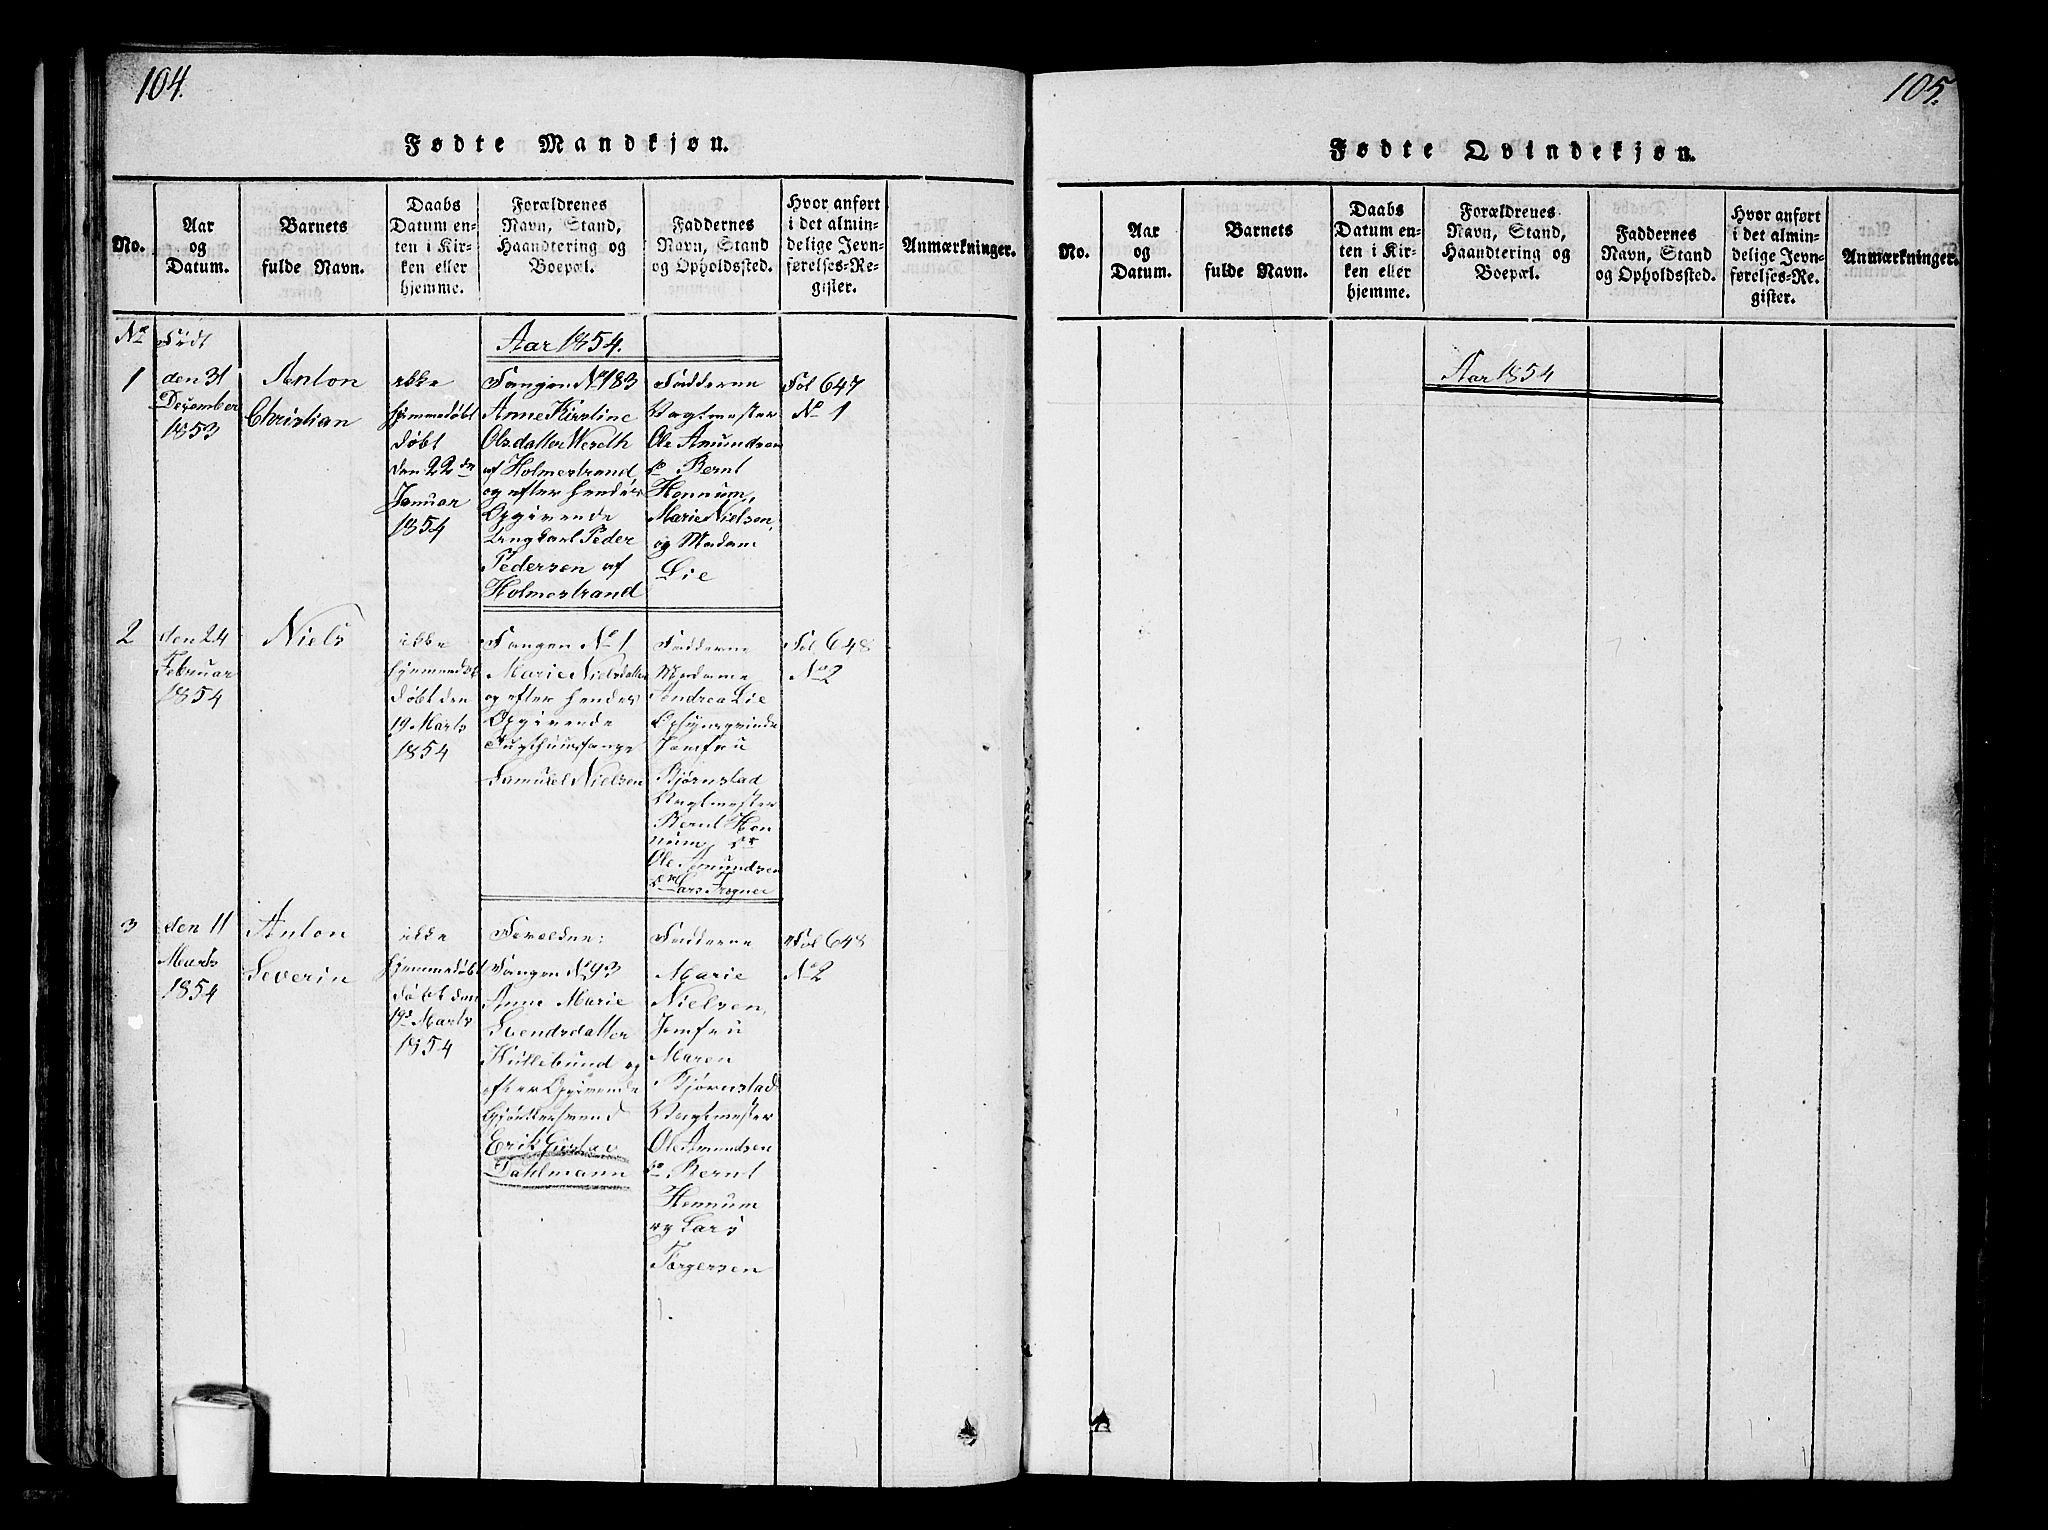 104.
Fødte Mandkjøn.
No.
Aar
og
Datum.
Barnets
fulde Navn.
Daabs
Datum en-
ten i Kir-
ken eller
hjemme.
Forældrenes
Navn, Stand,
Haandtering og
Boepæl.
Faddernes
Navn, Stand
og Opholdssted.
Hvor anført
i det almin-
delige Jevn-
førelses-Re-
gister.
Anmærkninger.
No
Født
Aar 1854.
1
den 31
December
1853
Anton
Christian
ikke
hjemmedøbt
døbt
den 22de
Januar
1854
Fangen No 183
Anne Kirstine
Olsdatter
af Holmestrand,
og efter hendes
Opgivende
Ungkarl Peder
Pedersen af
Holmestrand
Fadderne
Vagtmester
Ole Amundsen
do Bernt
Hennum,
Marie Nielsen,
og Madam
Lie
Fol 647
No 1
2
den 24
Februar
1854
Niels
ikke
hjemmedøbt
døbt den
19 Marts
1854
Fangen No 1
Marie Nielsdatter
og efter hendes
Opgivende
Tugthuusfange
Samuel Nielsen
Fadderne
Madame
Andrea Lie
Opsynsqvinde
Jomfru
Bjørnstad
Vagtmester
Bernt Hen
num, do
Ole Amundsen
do Lars Frogner
Fol 648
No 2
3
den 11
Marts
1854
Anton
Severin
ikke
hjemmedøbt
døbt den
19de Marts
1854
Forældre:
Fangen No 93
Anne Marie
Svendsdatter
Kullebund og
efter Opgivende
Erik Gustav
Dahlmann
Fadderne
Marie
Nielsen,
Jomfru
Maren
Bjørnstad
Vagtmester
Ole Amundsen
do Bernt
Hennum
og Lars
Torgersen
Fol 648
No 2
105.
Fødte Qvindekjøn.
No.
Aar
og
Datum.
Barnets
fulde Navn.
Daabs
Datum en-
ten i Kir-
ken eller
hjemme.
Forældrenes
Navn, Stand,
Haandtering og
Boepæl.
Faddernes
Navn, Stand
og Opholdssted.
Hvor anført
i det almin-
delige Jevn-
førelses-Re-
gister.
Anmærkninger.
Aar 1854